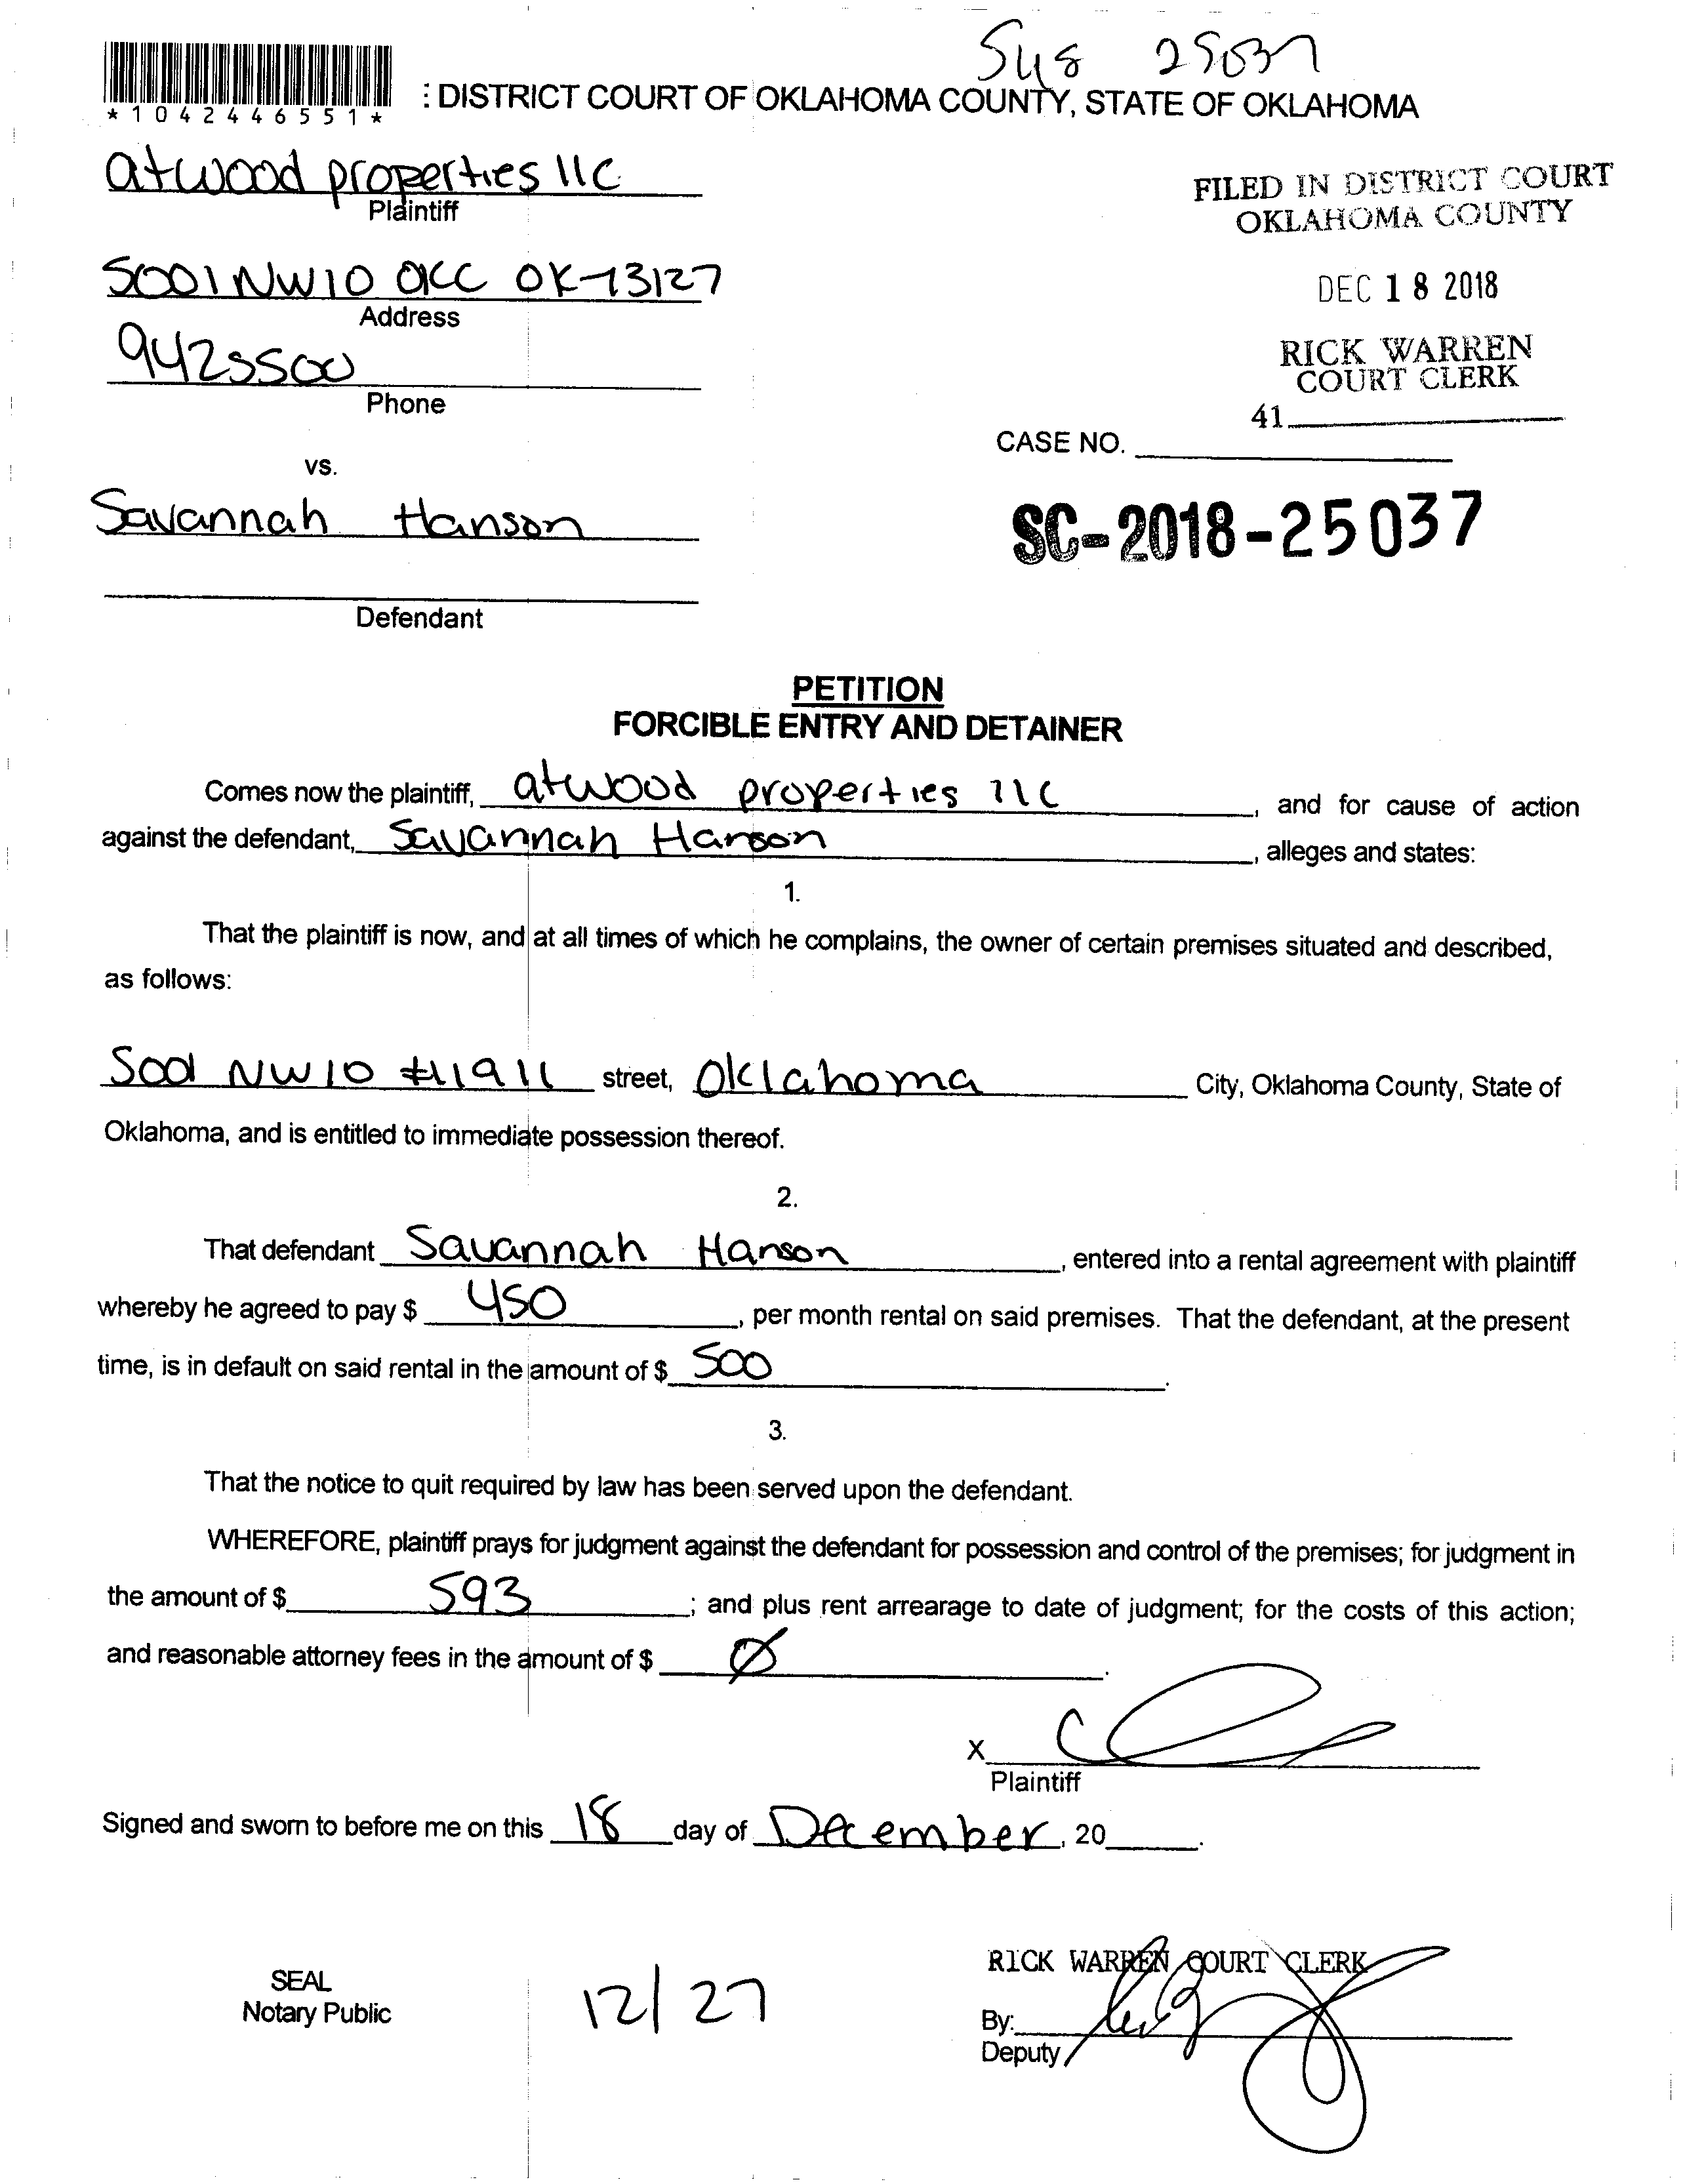 Sys 25037
*1042446551*
: DISTRICT COURT OF OKLAHOMA COUNTY, STATE OF OKLAHOMA
atwood properties llc
Plaintiff
FILED IN DISTRICT COURT
OKLAHOMA COUNTY
5001 NW 10 OKC OK 73127
Address
DEC 18 2018
9425500
Phone
RICK WARREN
COURT CLERK
41
CASE NO.
vs.
Savannah Hanson
SC-2018-25037
Defendant
PETITION
FORCIBLE ENTRY AND DETAINER
Comes now the plaintiff, atwood properties llc, and for cause of action
against the defendant, Savannah Hanson, alleges and states:
1.
That the plaintiff is now, and at all times of which he complains, the owner of certain premises situated and described,
as follows:
5001 NW 10 #1911 street, Oklahoma City, Oklahoma County, State of
Oklahoma, and is entitled to immediate possession thereof.
2.
That defendant Savannah Hanson, entered into a rental agreement with plaintiff
whereby he agreed to pay $ 450, per month rental on said premises. That the defendant, at the present
time, is in default on said rental in the amount of $ 500.
3.
That the notice to quit required by law has been served upon the defendant.
WHEREFORE, plaintiff prays for judgment against the defendant for possession and control of the premises; for judgment in
the amount of $ 593; and plus rent arrearage to date of judgment; for the costs of this action;
and reasonable attorney fees in the amount of $ Ø.
X
Plaintiff
Signed and sworn to before me on this 18 day of December, 20.
SEAL
Notary Public
12/27
RICK WARREN COURT CLERK
By:
Deputy